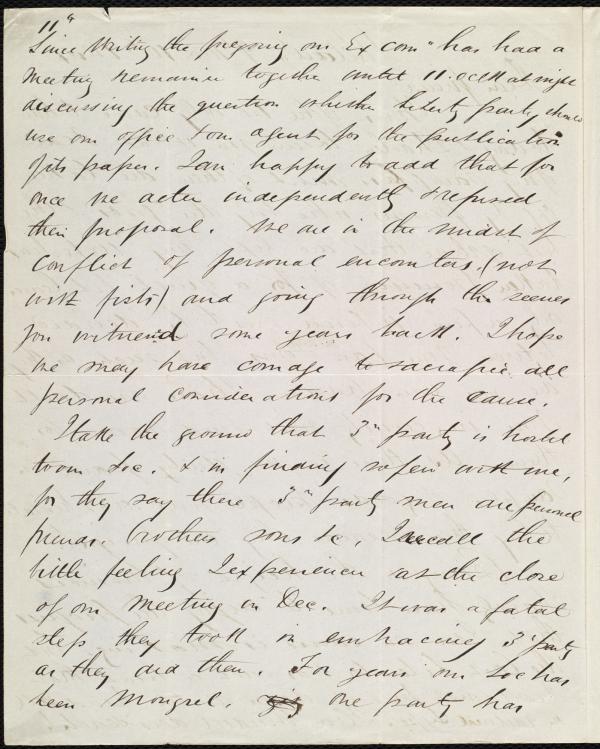 11"
Since writing the foregoing our Ex com" has had a
meeting remained together until 11.oclk at night
discussing the question whether Liberty party should
use our office & our agent for the publication
of its paper. I am happy to add that for
once we acted independently & refused
their proposal. We are in the midst of
conflict of personal encounters, (not
with fists) and going through the scenes
you witnessd some years back. I hope
we may have courage to sacrafice all
personal considerations for the cause.
I take the ground that 3" party is hostel
to our Soc. & in finding with me,
for they say there 3" party men are personal
friends. brothers sons &c, I recall the
little feeling I experienced at the close
of our meeting in Dec. It was a fatal
step they took in embracing 3" party
as they did then. For years our Soc has
been Mongrel. one party has